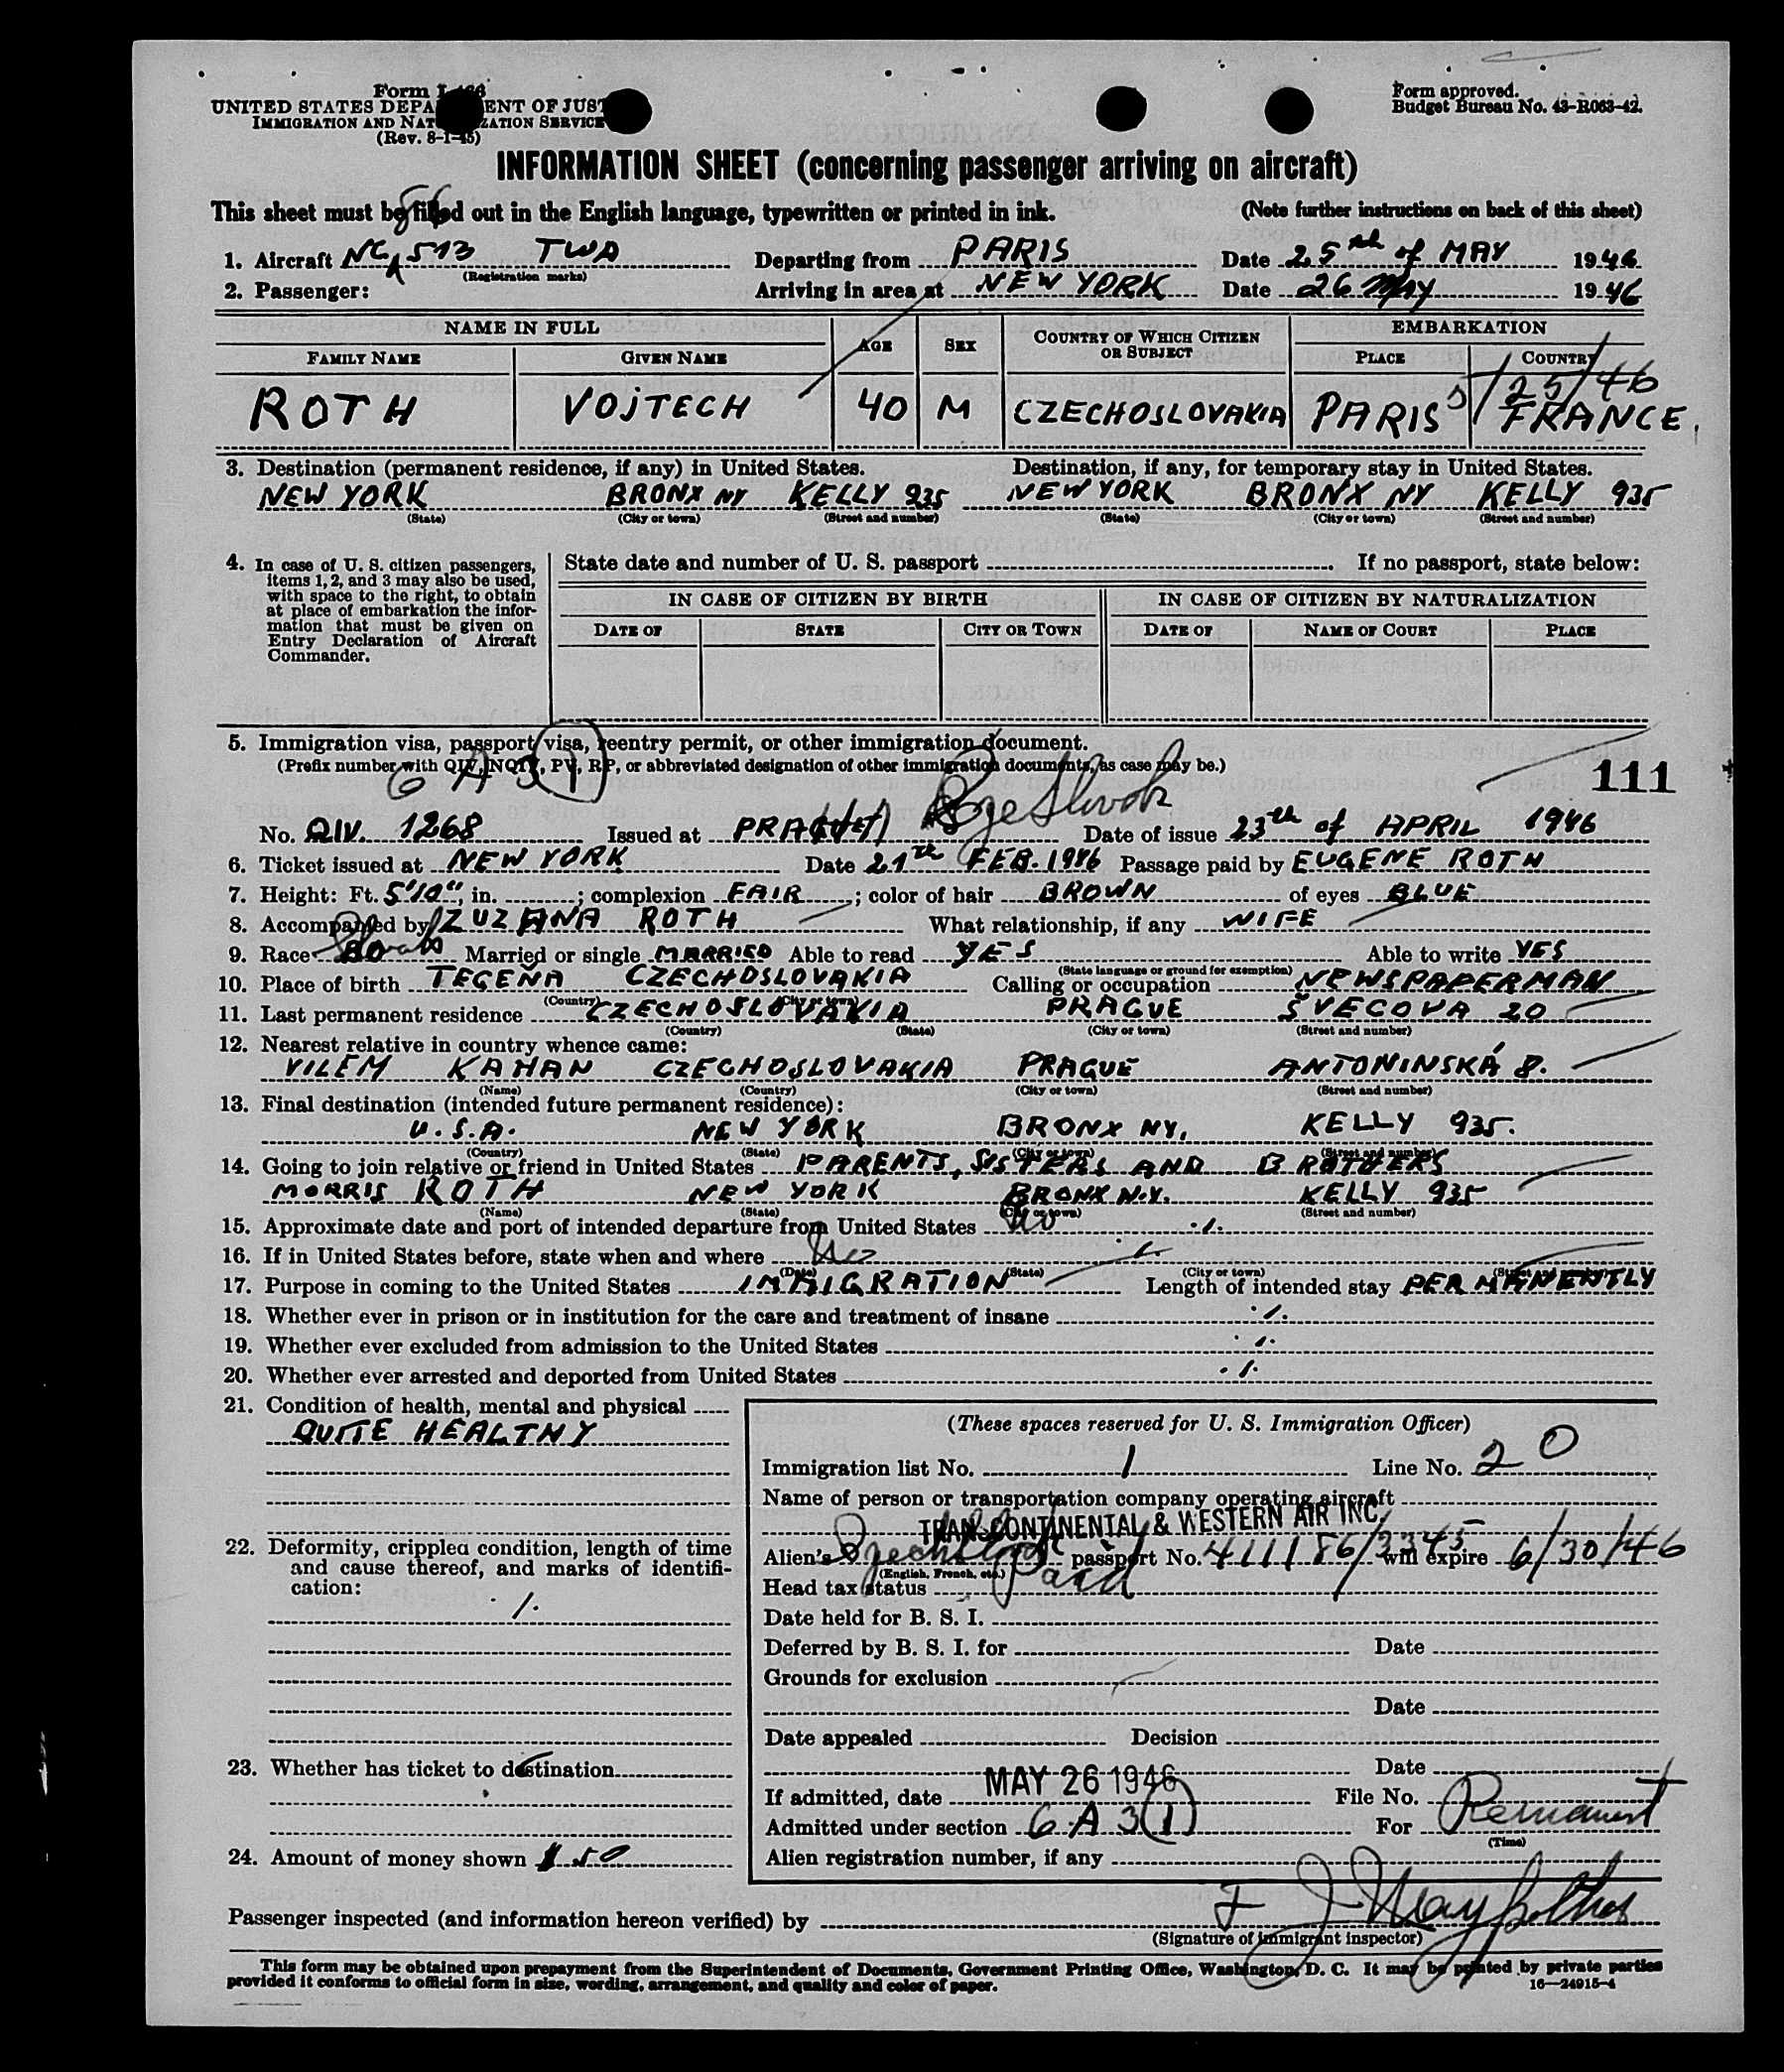 Form I-466
UNITED STATES DEPARTMENT OF JUSTICE
IMMIGRATION AND NATURALIZATION SERVICE
(Rev. 8-1-45)
Form approved.
Budget Bureau No. 43-R063-42.
INFORMATION SHEET (concerning passenger arriving on aircraft)
This sheet must be filled out in the English language, typewritten or printed in ink.
(Note further instructions on back of this sheet)
86
1. Aircraft NC 513 TWA Departing from PARIS Date 25th of MAY 1946
(Registration marks)
2. Passenger: Arriving in area at NEW YORK Date 26 May 1946
NAME IN FULL AGE SEX COUNTRY OF WHICH CITIZEN OR SUBJECT EMBARKATION
FAMILY NAME GIVEN NAME PLACE COUNTRY
5/25/46
ROTH VOJTECH 40 M CZECHOSLOVAKIA PARIS FRANCE.
3. Destination (permanent residence, if any) in United States. Destination, if any, for temporary stay in United States.
NEW YORK BRONX NY KELLY 935 NEW YORK BRONX NY KELLY 935
(State) (City or town) (Street and number) (State) (City or town) (Street and number)
4. In case of U. S. citizen passengers,
items 1, 2, and 3 may also be used,
with space to the right, to obtain
at place of embarkation the infor-
mation that must be given on
Entry Declaration of Aircraft
Commander.
State date and number of U. S. passport If no passport, state below:
IN CASE OF CITIZEN BY BIRTH IN CASE OF CITIZEN BY NATURALIZATION
DATE OF STATE CITY OR TOWN DATE OF NAME OF COURT PLACE
5. Immigration visa, passport visa, reentry permit, or other immigration document.
(Prefix number with QIV, NQIV, PV, RP, or abbreviated designation of other immigration documents, as case may be.)
111
6 A 3 (1)
No. QIV. 1268 Issued at PRAGUE Date of issue 23th of APRIL 1946
6. Ticket issued at NEW YORK Date 21th FEB. 1946 Passage paid by EUGENE ROTH
7. Height: Ft. 5'10", in. ; complexion FAIR ; color of hair BROWN of eyes BLUE
8. Accompanied by ZUZANA ROTH What relationship, if any WIFE
9. Race Slovak Married or single MARRIED Able to read YES Able to write YES
(State language or ground for exemption)
10. Place of birth TEGEŇA CZECHOSLOVAKIA Calling or occupation NEWSPAPERMAN
(Country) (City or town)
11. Last permanent residence CZECHOSLOVAKIA PRAGUE ŠVECOVA 20
(Country) (State) (City or town) (Street and number)
12. Nearest relative in country whence came:
VILEM KAHAN CZECHOSLOVAKIA PRAGUE ANTONINSKÁ 8.
(Name) (Country) (City or town) (Street and number)
13. Final destination (intended future permanent residence):
U.S.A. NEW YORK BRONX NY, KELLY 935.
(Country) (State) (City or town) (Street and number)
14. Going to join relative or friend in United States PARENTS, SISTERS AND BROTHERS
MORRIS ROTH NEW YORK BRONX N.Y. KELLY 935
(Name) (State) (City or town) (Street and number)
15. Approximate date and port of intended departure from United States No ./.
16. If in United States before, state when and where ./.
(Date) (State) (City or town) (Street and number)
17. Purpose in coming to the United States IMMIGRATION Length of intended stay PERMANENTLY
18. Whether ever in prison or in institution for the care and treatment of insane ./.
19. Whether ever excluded from admission to the United States ./.
20. Whether ever arrested and deported from United States ./.
21. Condition of health, mental and physical
QUITE HEALTHY
22. Deformity, crippled condition, length of time
and cause thereof, and marks of identifi-
cation:
./.
23. Whether has ticket to destination
24. Amount of money shown $ 50
(These spaces reserved for U. S. Immigration Officer)
Immigration list No. 1 Line No. 20
Name of person or transportation company operating aircraft
TRANSCONTINENTAL & WESTERN AIR INC.
Alien's passport No. 411186/3345 will expire 6/30/46
(English, French, etc.)
Head tax status Paid
Date held for B. S. I.
Deferred by B. S. I. for Date
Grounds for exclusion
Date
Date appealed Decision
Date
If admitted, date MAY 26 1946 File No.
Admitted under section 6 A 3 (1) For Permanent
(Time)
Alien registration number, if any
Passenger inspected (and information hereon verified) by
(Signature of immigrant inspector)
This form may be obtained upon prepayment from the Superintendent of Documents, Government Printing Office, Washington, D. C. It may be printed by private parties
provided it conforms to official form in size, wording, arrangement, and quality and color of paper.
16—24915-4